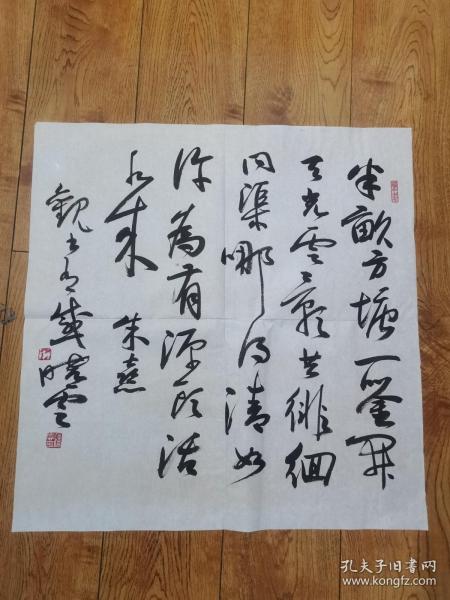 半畝方塘一鉴开
天光雲影共徘徊
问渠哪得清如
许為有源头活
水来 朱熹
觀书有感 曉雲
孔夫子旧书网
www.kongfz.com